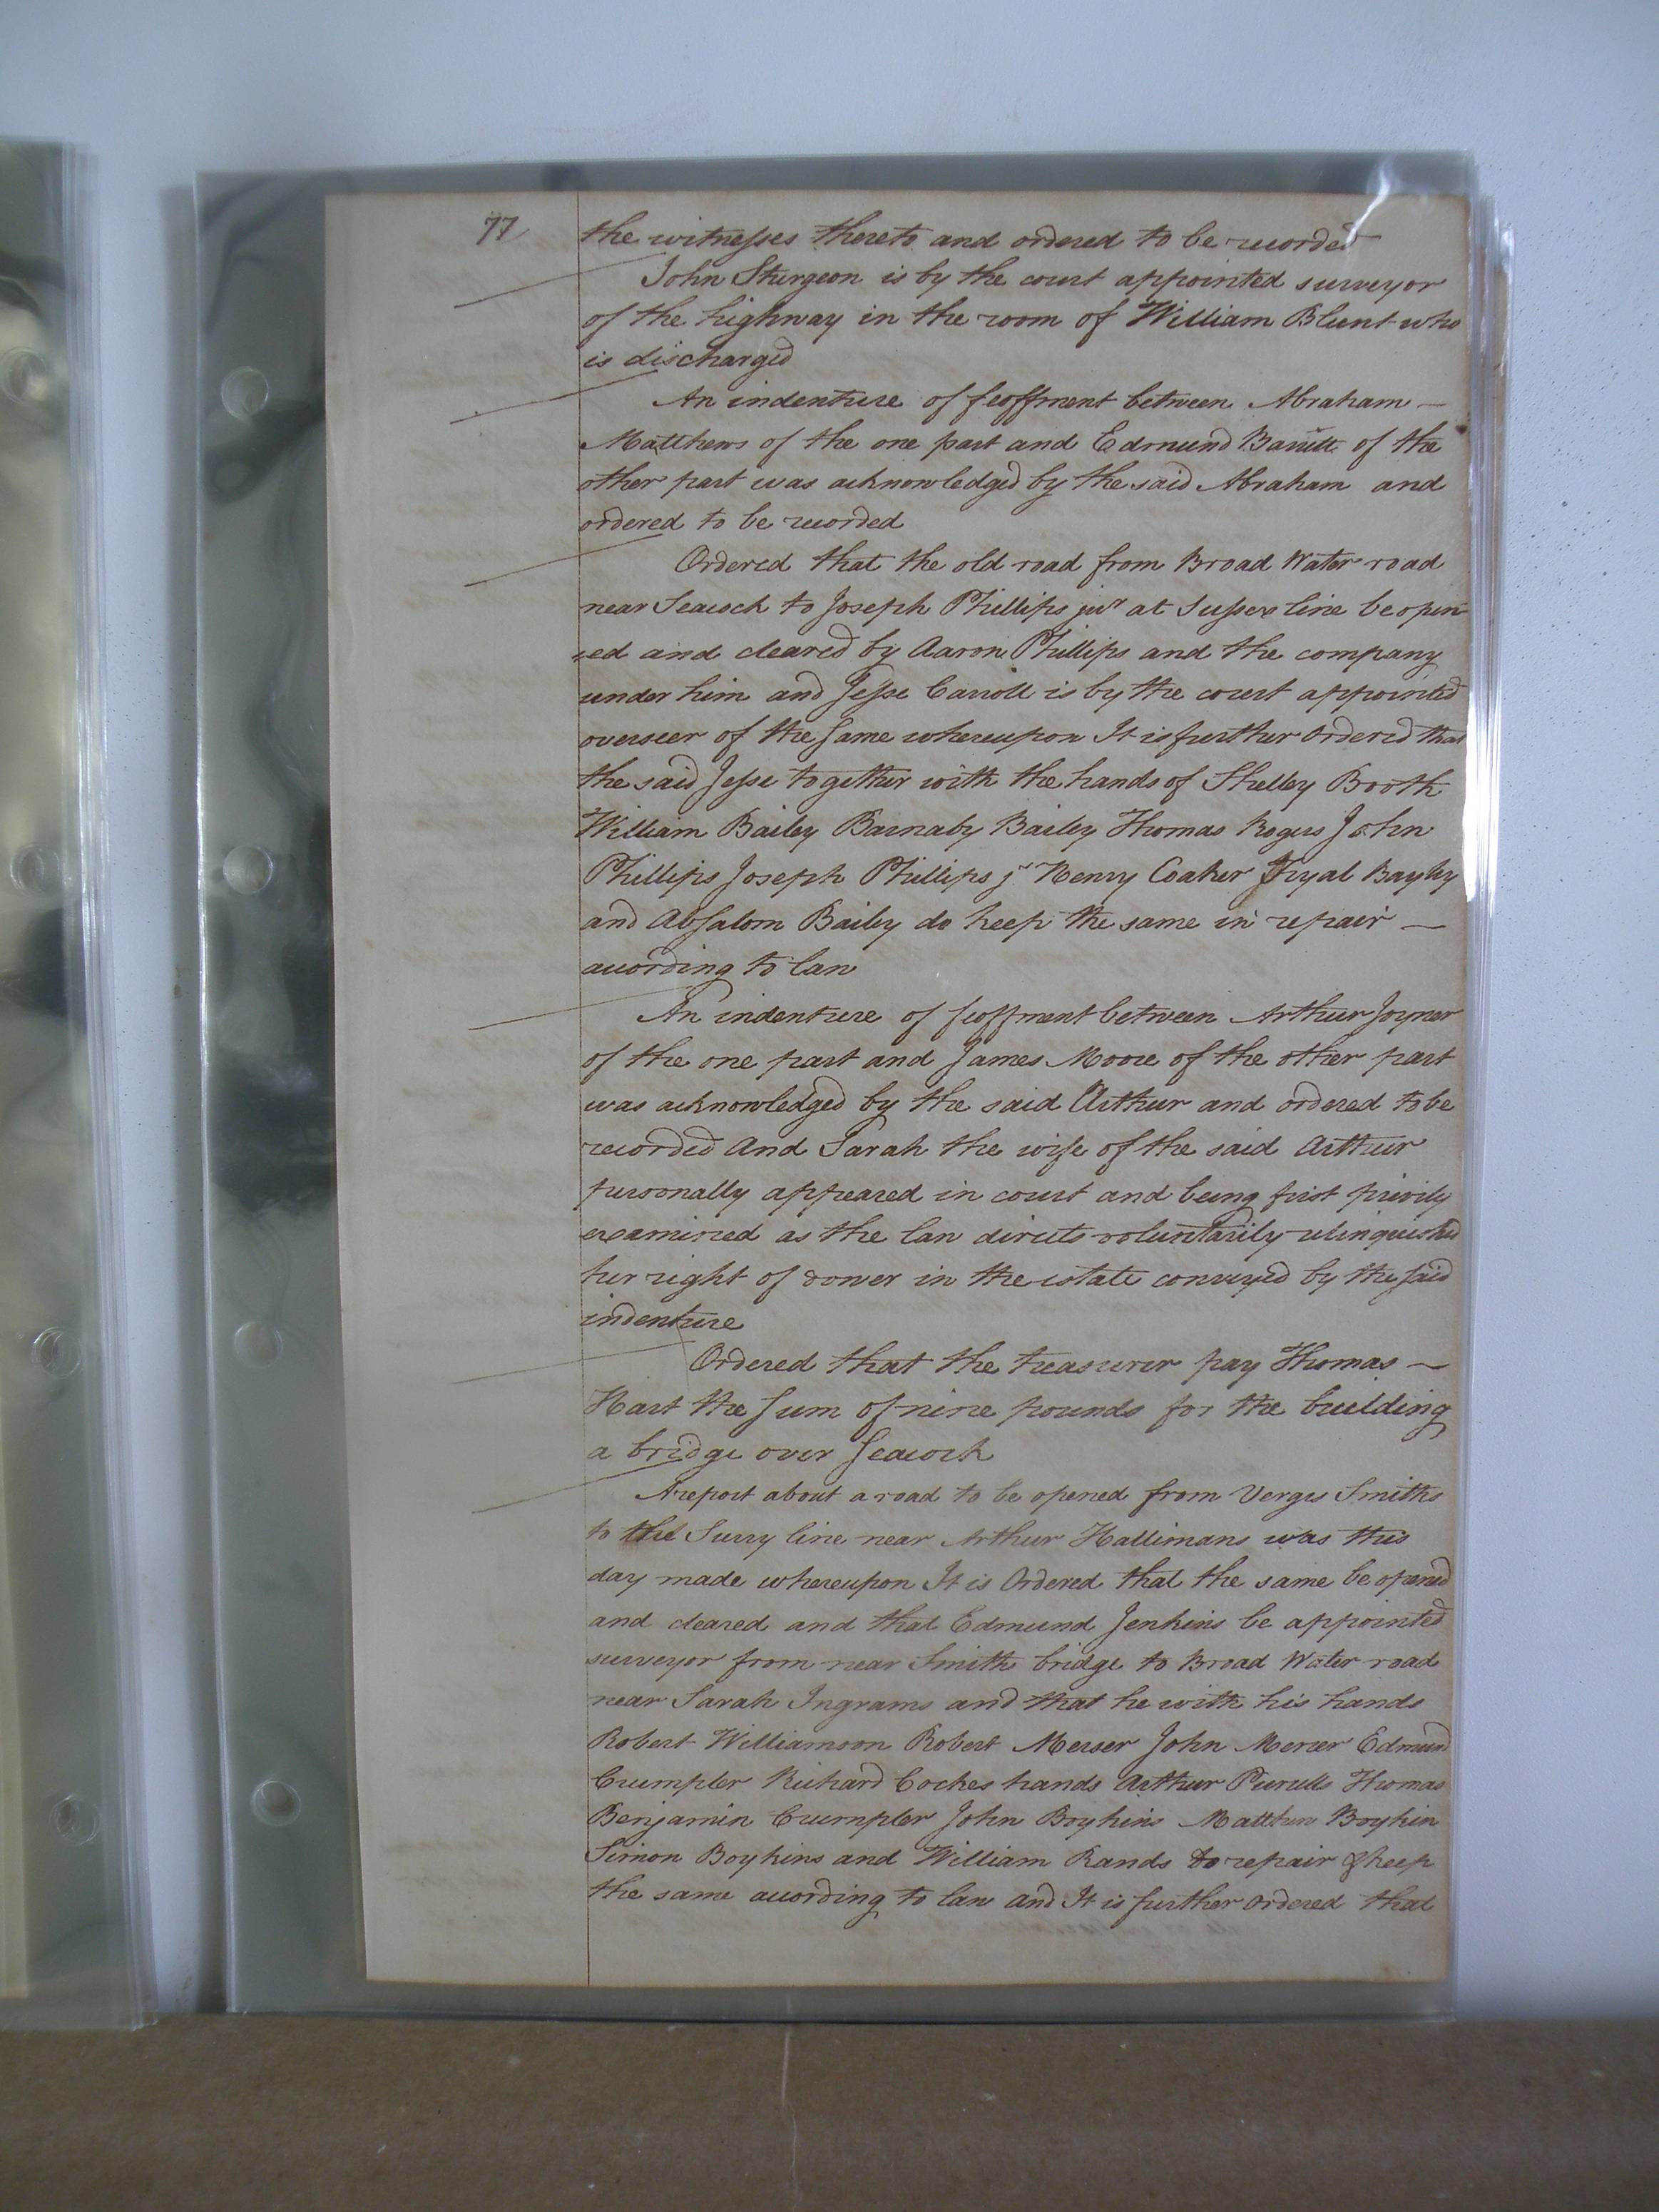 77
the witnesses thereto and ordered to be recorded
John Sturgeon is by the court appointed surveyor
of the highway in the room of William Blunt who
is discharged
An indenture of feoffment between Abraham —
Matthews of the one part and Edmund of the
other part was acknowledged by the said Abraham and
ordered to be recorded
Ordered that the old road from Broad Water road
near Seacock to Joseph Phillips junr at Sussex line be open
=ed and cleared by Aaron Phillips and the company
under him and Jesse Carroll is by the court appointed
overseer of the same whereupon It is further Ordered that
the said Jesse together with the hands of Shelley Booth
William Bailey Barnaby Bailey Thomas Rogers John
Phillips Joseph Phillips jr Henry Coaker Tryal Bayley
and Absalom Bailey do keep the same in repair —
according to law
An indenture of feoffment between Arthur Joyner
of the one part and James Moore of the other part
was acknowledged by the said Arthur and ordered to be
recorded And Sarah the wife of the said Arthur
personally appeared in court and being first privily
examined as the law directs voluntarily relinquished
her right of dower in the estate conveyed by the said
indenture
Ordered that the treasurer pay Thomas —
Hart the sum of nine pounds for the building
a bridge over Seacock
A report about a road to be opened from Verges Smiths
to the Surry line near Arthur Hallimans was this
day made whereupon It is Ordered that the same be opened
and cleared and that Edmund Jenkins be appointed
surveyor from near Smiths bridge to Broad Water road
near Sarah Ingrams and that he with his hands
Robert Williamson Robert Merser John Mercer Edmund
Crumpler Richard Cockes hands Arthur Thomas
Benjamin Crumpler John Boykins Matthew Boykin
Simon Boykins and William Rands to repair & keep
the same according to law and It is further ordered that